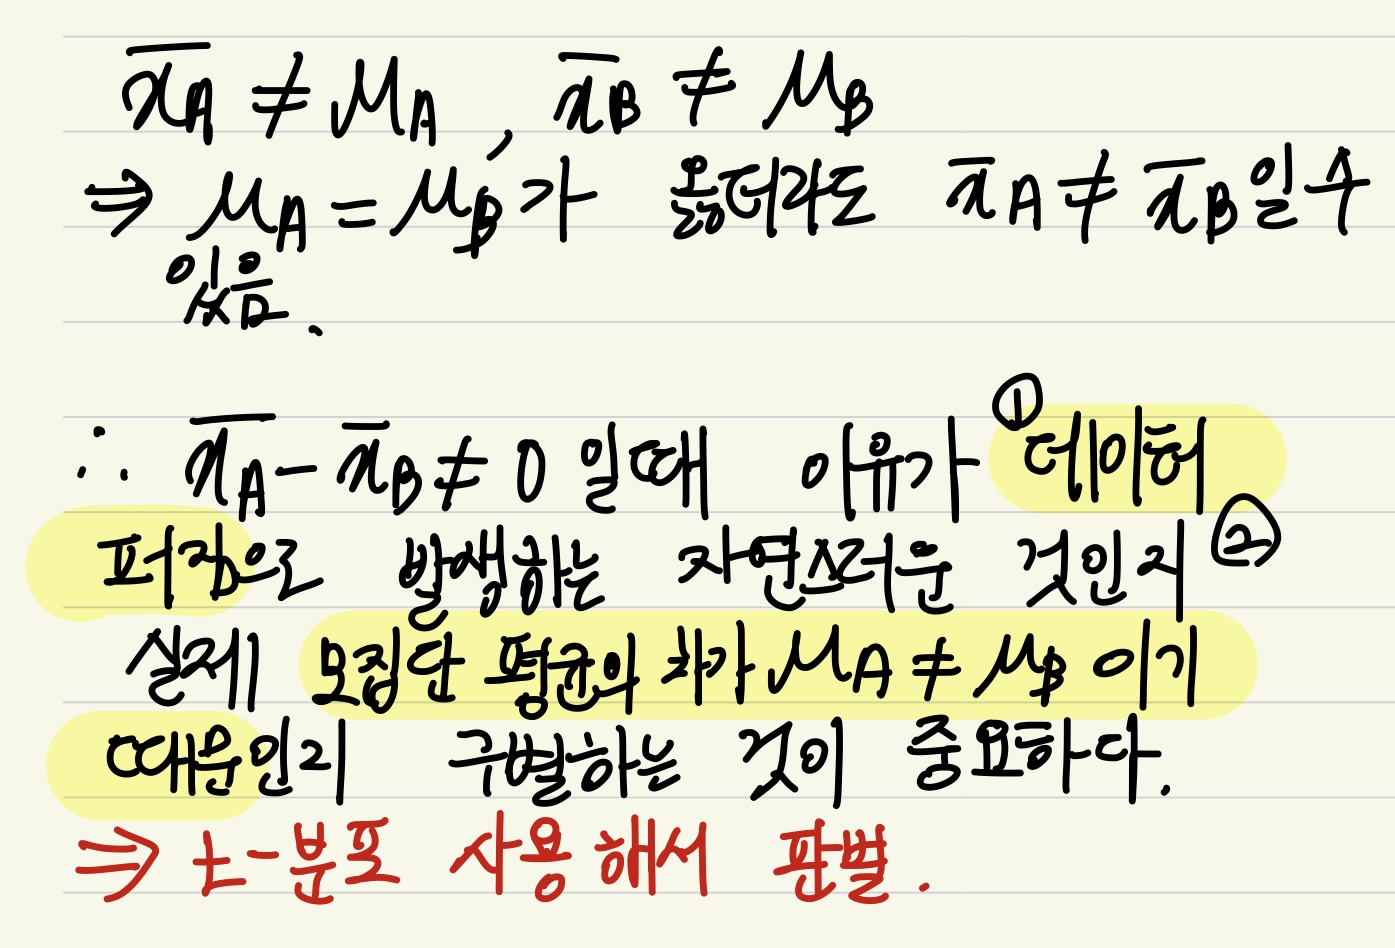 x̄A ≠ μA , x̄B ≠ μB
⇒ μA = μB가 옳더라도 x̄A ≠ x̄B일 수
있음.
∴ x̄A - x̄B ≠ 0 일때 이유가 ①데이터
퍼짐으로 발생하는 자연스러운 것인지 ②
실제 모집단 평균의 차가 μA ≠ μB 이기
때문인지 구별하는 것이 중요하다.
⇒ t-분포 사용해서 판별.